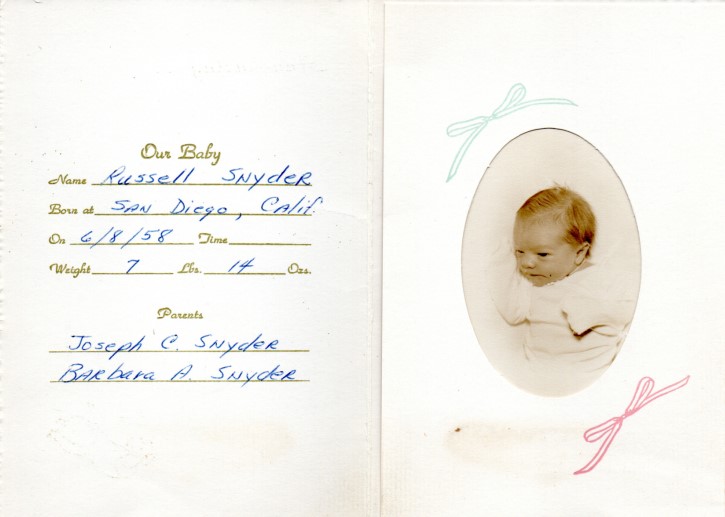 Our Baby
Name Russell Snyder
Born at San Diego, Calif.
On 6/8/58 Time
Weight 7 Lbs. 14 Ozs.
Parents
Joseph C. Snyder
Barbara A. Snyder